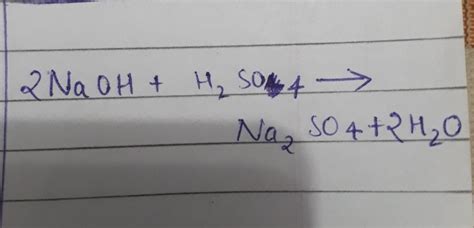 2NaOH + H₂SO4 →
Na₂SO4+2H₂O